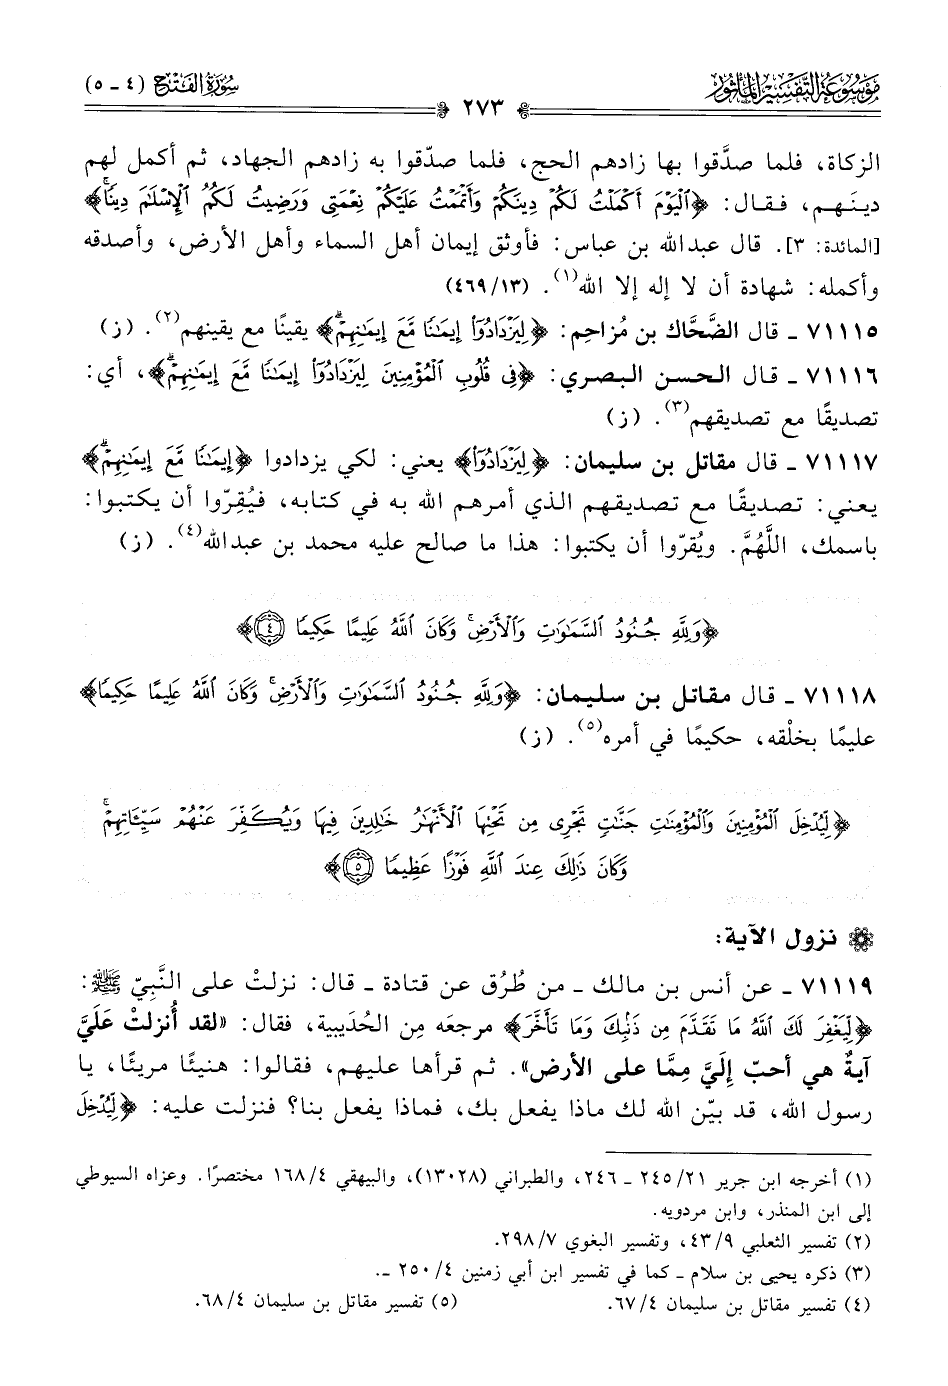 سُورَةُ الفَتْحِ (٤ - ٥)
٢٧٣
مَوْسُوعَةُ التَّفْسِيرِ المَأْثُورِ
الزكاة، فلما صدَّقوا بها زادهم الحج، فلما صدّقوا به زادهم الجهاد، ثم أكمل لهم
دينَهم، فقال: ﴿ٱلْيَوْمَ أَكْمَلْتُ لَكُمْ دِينَكُمْ وَأَتْمَمْتُ عَلَيْكُمْ نِعْمَتِى وَرَضِيتُ لَكُمُ ٱلْإِسْلَٰمَ دِينًا﴾
[المائدة: ٣]. قال عبدالله بن عباس: فأوثق إيمان أهل السماء وأهل الأرض، وأصدقه
وأكمله: شهادة أن لا إله إلا الله(١). (٤٦٩/١٣)
٧١١١٥ - قال الضَّحَّاك بن مُزاحِم: ﴿لِيَزْدَادُوٓا۟ إِيمَٰنًا مَّعَ إِيمَٰنِهِمْ﴾ يقينًا مع يقينهم(٢). (ز)
٧١١١٦ - قال الحسن البصري: ﴿فِى قُلُوبِ ٱلْمُؤْمِنِينَ لِيَزْدَادُوٓا۟ إِيمَٰنًا مَّعَ إِيمَٰنِهِمْ﴾، أي:
تصديقًا مع تصديقهم(٣). (ز)
٧١١١٧ - قال مقاتل بن سليمان: ﴿لِيَزْدَادُوٓا۟﴾ يعني: لكي يزدادوا ﴿إِيمَٰنًا مَّعَ إِيمَٰنِهِمْ﴾
يعني: تصديقًا مع تصديقهم الذي أمرهم الله به في كتابه، فيُقِرّوا أن يكتبوا:
باسمك، اللَّهُمَّ. ويُقرّوا أن يكتبوا: هذا ما صالح عليه محمد بن عبدالله(٤). (ز)
﴿وَلِلَّهِ جُنُودُ ٱلسَّمَٰوَٰتِ وَٱلْأَرْضِ ۚ وَكَانَ ٱللَّهُ عَلِيمًا حَكِيمًا ٤﴾
٧١١١٨ - قال مقاتل بن سليمان: ﴿وَلِلَّهِ جُنُودُ ٱلسَّمَٰوَٰتِ وَٱلْأَرْضِ ۚ وَكَانَ ٱللَّهُ عَلِيمًا حَكِيمًا﴾
عليمًا بخلْقه، حكيمًا في أمره(٥). (ز)
﴿لِّيُدْخِلَ ٱلْمُؤْمِنِينَ وَٱلْمُؤْمِنَٰتِ جَنَّٰتٍ تَجْرِى مِن تَحْتِهَا ٱلْأَنْهَٰرُ خَٰلِدِينَ فِيهَا وَيُكَفِّرَ عَنْهُمْ سَيِّـَٔاتِهِمْ ۚ
وَكَانَ ذَٰلِكَ عِندَ ٱللَّهِ فَوْزًا عَظِيمًا ٥﴾
نزول الآية:
٧١١١٩ - عن أنس بن مالك - من طُرُق عن قتادة - قال: نزلتْ على النَّبِيّ ﷺ:
﴿لِّيَغْفِرَ لَكَ ٱللَّهُ مَا تَقَدَّمَ مِن ذَنۢبِكَ وَمَا تَأَخَّرَ﴾ مرجعَه مِن الحُدَيبية، فقال: «لقد أُنزلتْ عَلَيَّ
آيةٌ هي أحبّ إِلَيَّ مِمَّا على الأرض». ثم قرأها عليهم، فقالوا: هنيئًا مريئًا، يا
رسول الله، قد بيّن الله لك ماذا يفعل بك، فماذا يفعل بنا؟ فنزلت عليه: ﴿لِّيُدْخِلَ
(١) أخرجه ابن جرير ٢١/ ٢٤٥ - ٢٤٦، والطبراني (١٣٠٢٨)، والبيهقي ٤/ ١٦٨ مختصرًا. وعزاه السيوطي
إلى ابن المنذر، وابن مردويه.
(٢) تفسير الثعلبي ٩/ ٤٣، وتفسير البغوي ٧/ ٢٩٨.
(٣) ذكره يحيى بن سلام - كما في تفسير ابن أبي زمنين ٤/ ٢٥٠ -.
(٤) تفسير مقاتل بن سليمان ٤/ ٦٧.
(٥) تفسير مقاتل بن سليمان ٤/ ٦٨.